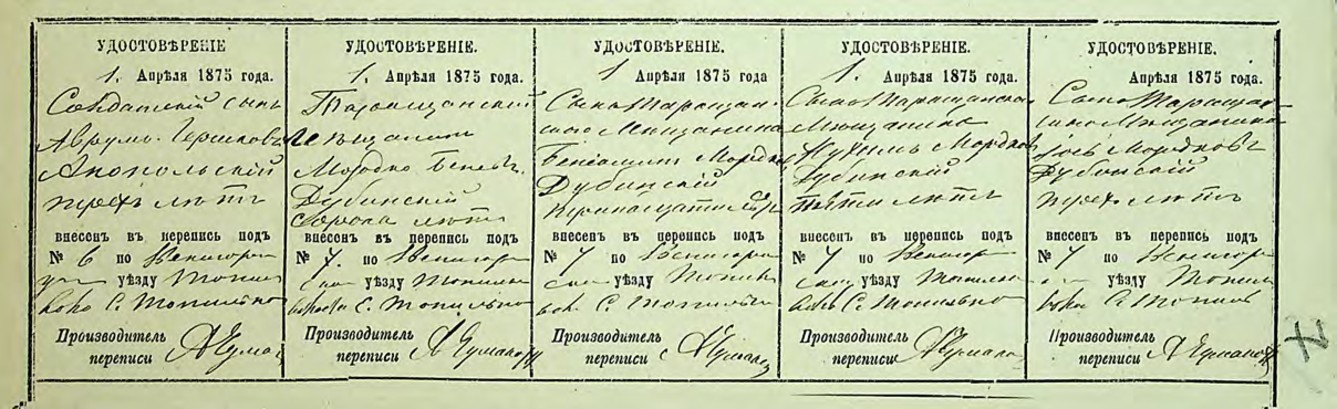 УДОСТОВѢРЕНІЕ
1. Апрѣля 1875 года.
Солдатскій сынъ
Аврумъ Гершковъ
Анопольскій
трехъ лѣтъ
внесенъ въ перепись подъ
№ 6 по Звенигород-
уѣзду
С. Топильно
Производитель
переписи
УДОСТОВѢРЕНІЕ.
1. Апрѣля 1875 года.
Таращанскій
Мѣщанинъ
Мордко
Дубинскій
Сорока лѣтъ
внесенъ въ перепись подъ
№ 7. по Звенигор
уѣзду
С. Топильно
Производитель
переписи
УДОСТОВѢРЕНІЕ.
1 Апрѣля 1875 года
Сынъ Таращан-
скаго Мѣщанина
Беніоминъ Мордков
Дубинскій
тринадцати
внесенъ въ перепись подъ
№ 7 по Звенигоро
уѣзду
С. Топильно
Производитель
переписи
УДОСТОВѢРЕНІЕ.
1. Апрѣля 1875 года.
Сынъ Таращанска
Мѣщанина
Нухимъ Мордков
Дубинскій
Пяти лѣтъ
внесенъ въ перепись подъ
№ 7 по Звенигор
уѣзду
С. Топильно
Производитель
переписи
УДОСТОВѢРЕНІЕ.
Апрѣля 1875 года.
Сынъ Таращан-
скаго Мѣщанина
Іось Мордковъ
Дубинскій
трехъ лѣтъ
внесенъ въ перепись подъ
№ 7 по Звенигор
уѣзду
С. Топиль
Производитель
переписи